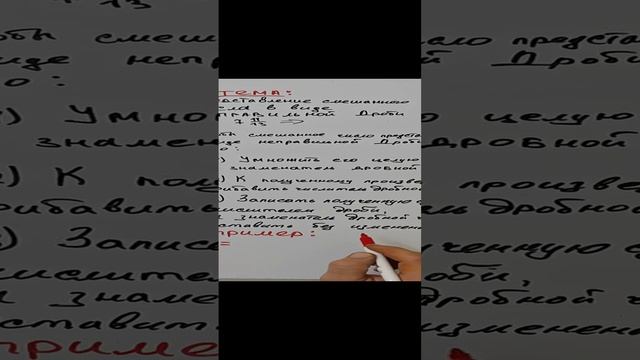 ТЕМА:
дставление смешанного
ла в виде
ПРАВИЛЬНОЙ Дроби
7 11/13 =>
бы смешанное число предста
иде неправильной Дроб
о:
) Умножить его целую
знаменатель дробной
) К полученному произве
рибавить числитель дробно
) Записать полученную с
ислителем дроби,
знаменатель дробной
ставить без изменен
ример:
=